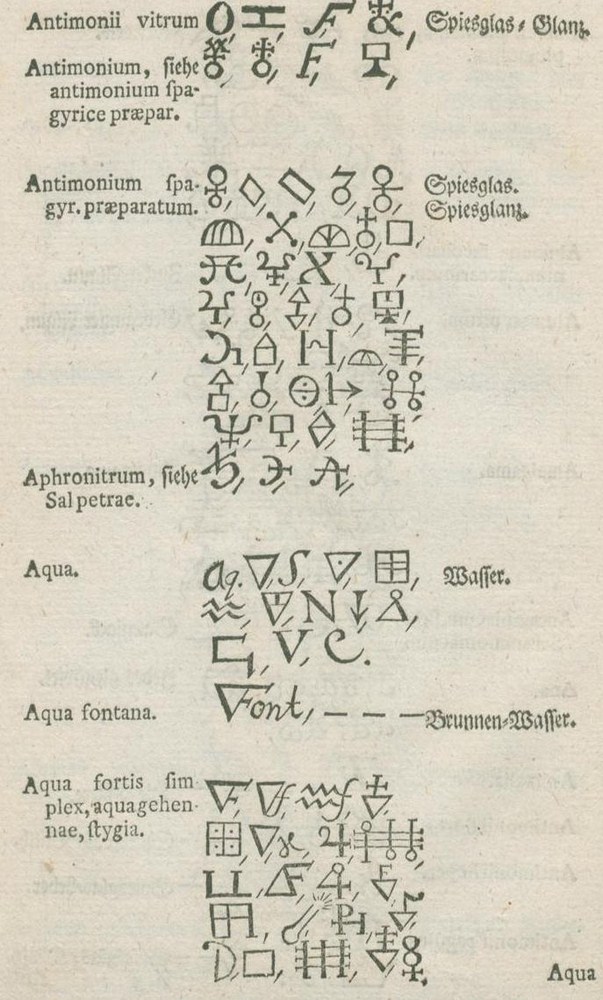 Antimonii vitrum Spiesglas-Glanz.
Antimonium, siehe
antimonium spa-
gyrice præpar.
Antimonium spa- Spiesglas.
gyr. præparatum. Spiesglanz.
Aphronitrum, siehe
Sal petrae.
Aqua. aq. Wasser.
N
V C.
Aqua fontana. Font, — — — Brunnen-Wasser.
Aqua fortis sim
plex, aqua gehen-
nae, stygia.
Aqua